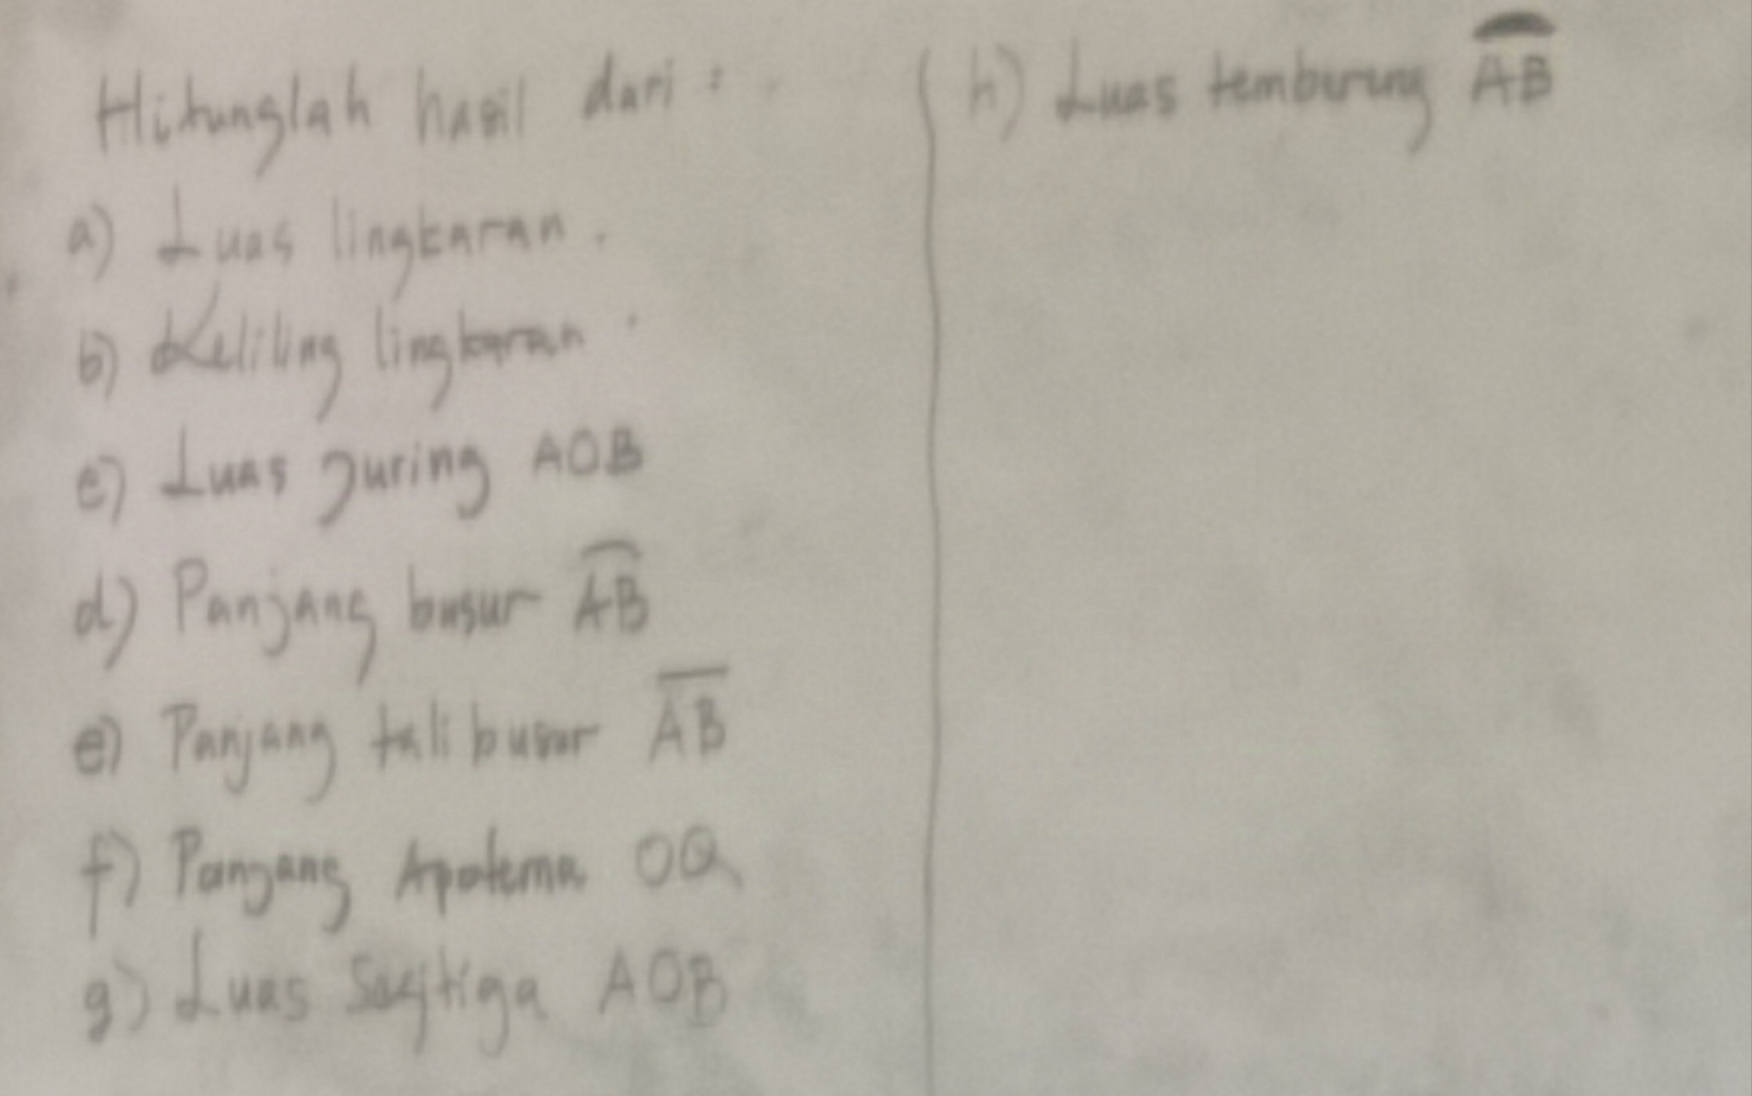 Hitunglah hasil dari :
a) Luas lingkaran .
b) Keliling lingkaran .
c) Luas Juring AOB
d) Panjang busur AB
e) Panjang tali busur AB
f) Panjang Apotema OQ
g) Luas Segitiga AOB
h) Luas tembereng AB